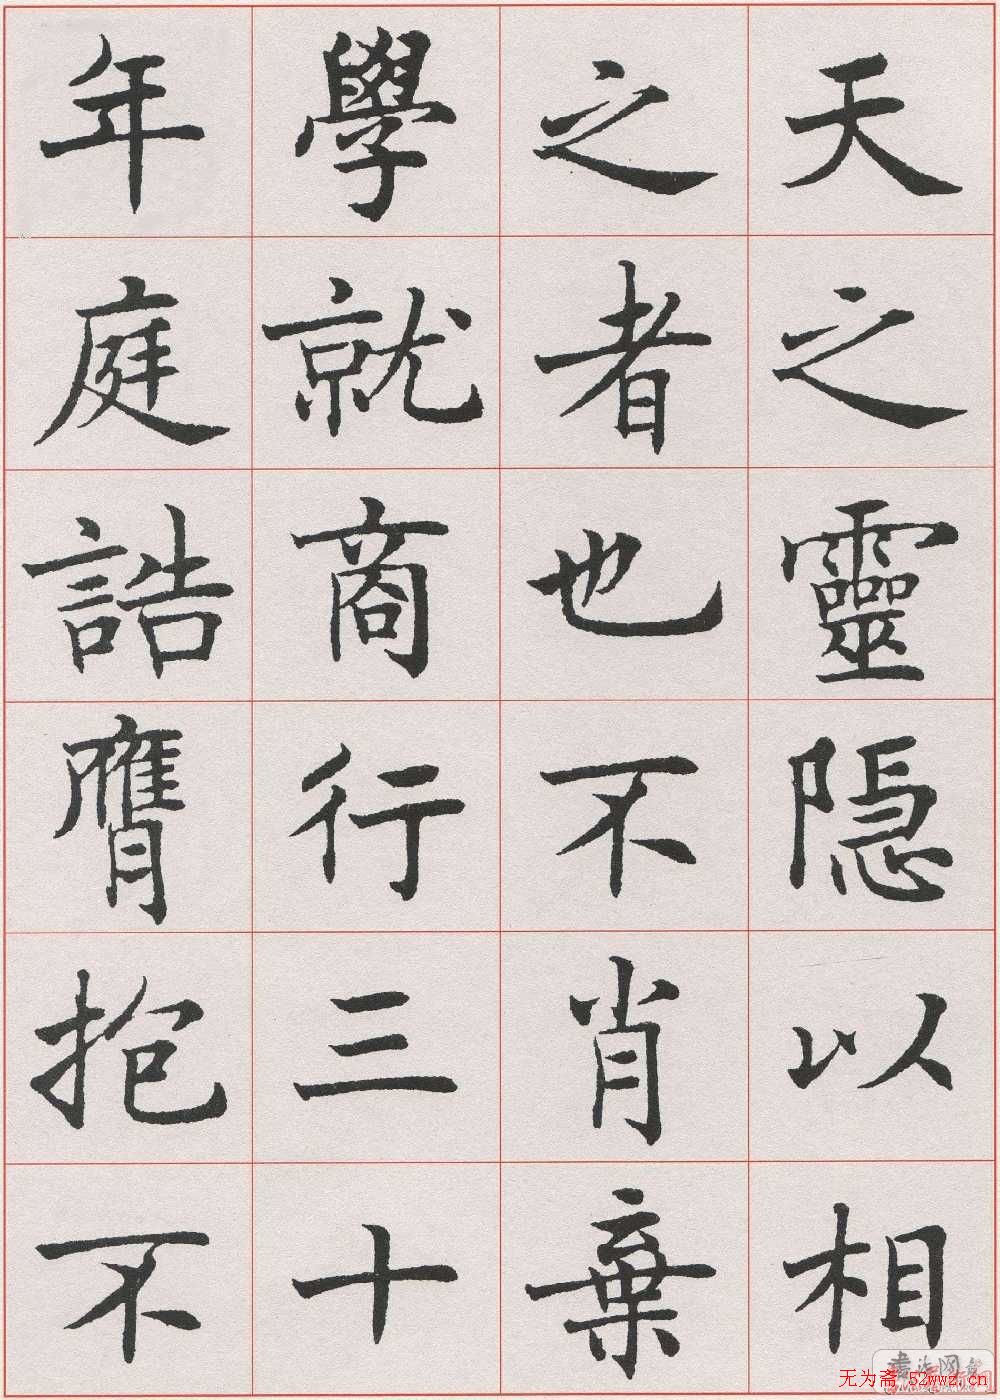 天之靈隱以相
之者也不肖棄
學就商行三十
年庭誥膺抱不
无为斋 52wwz.cn